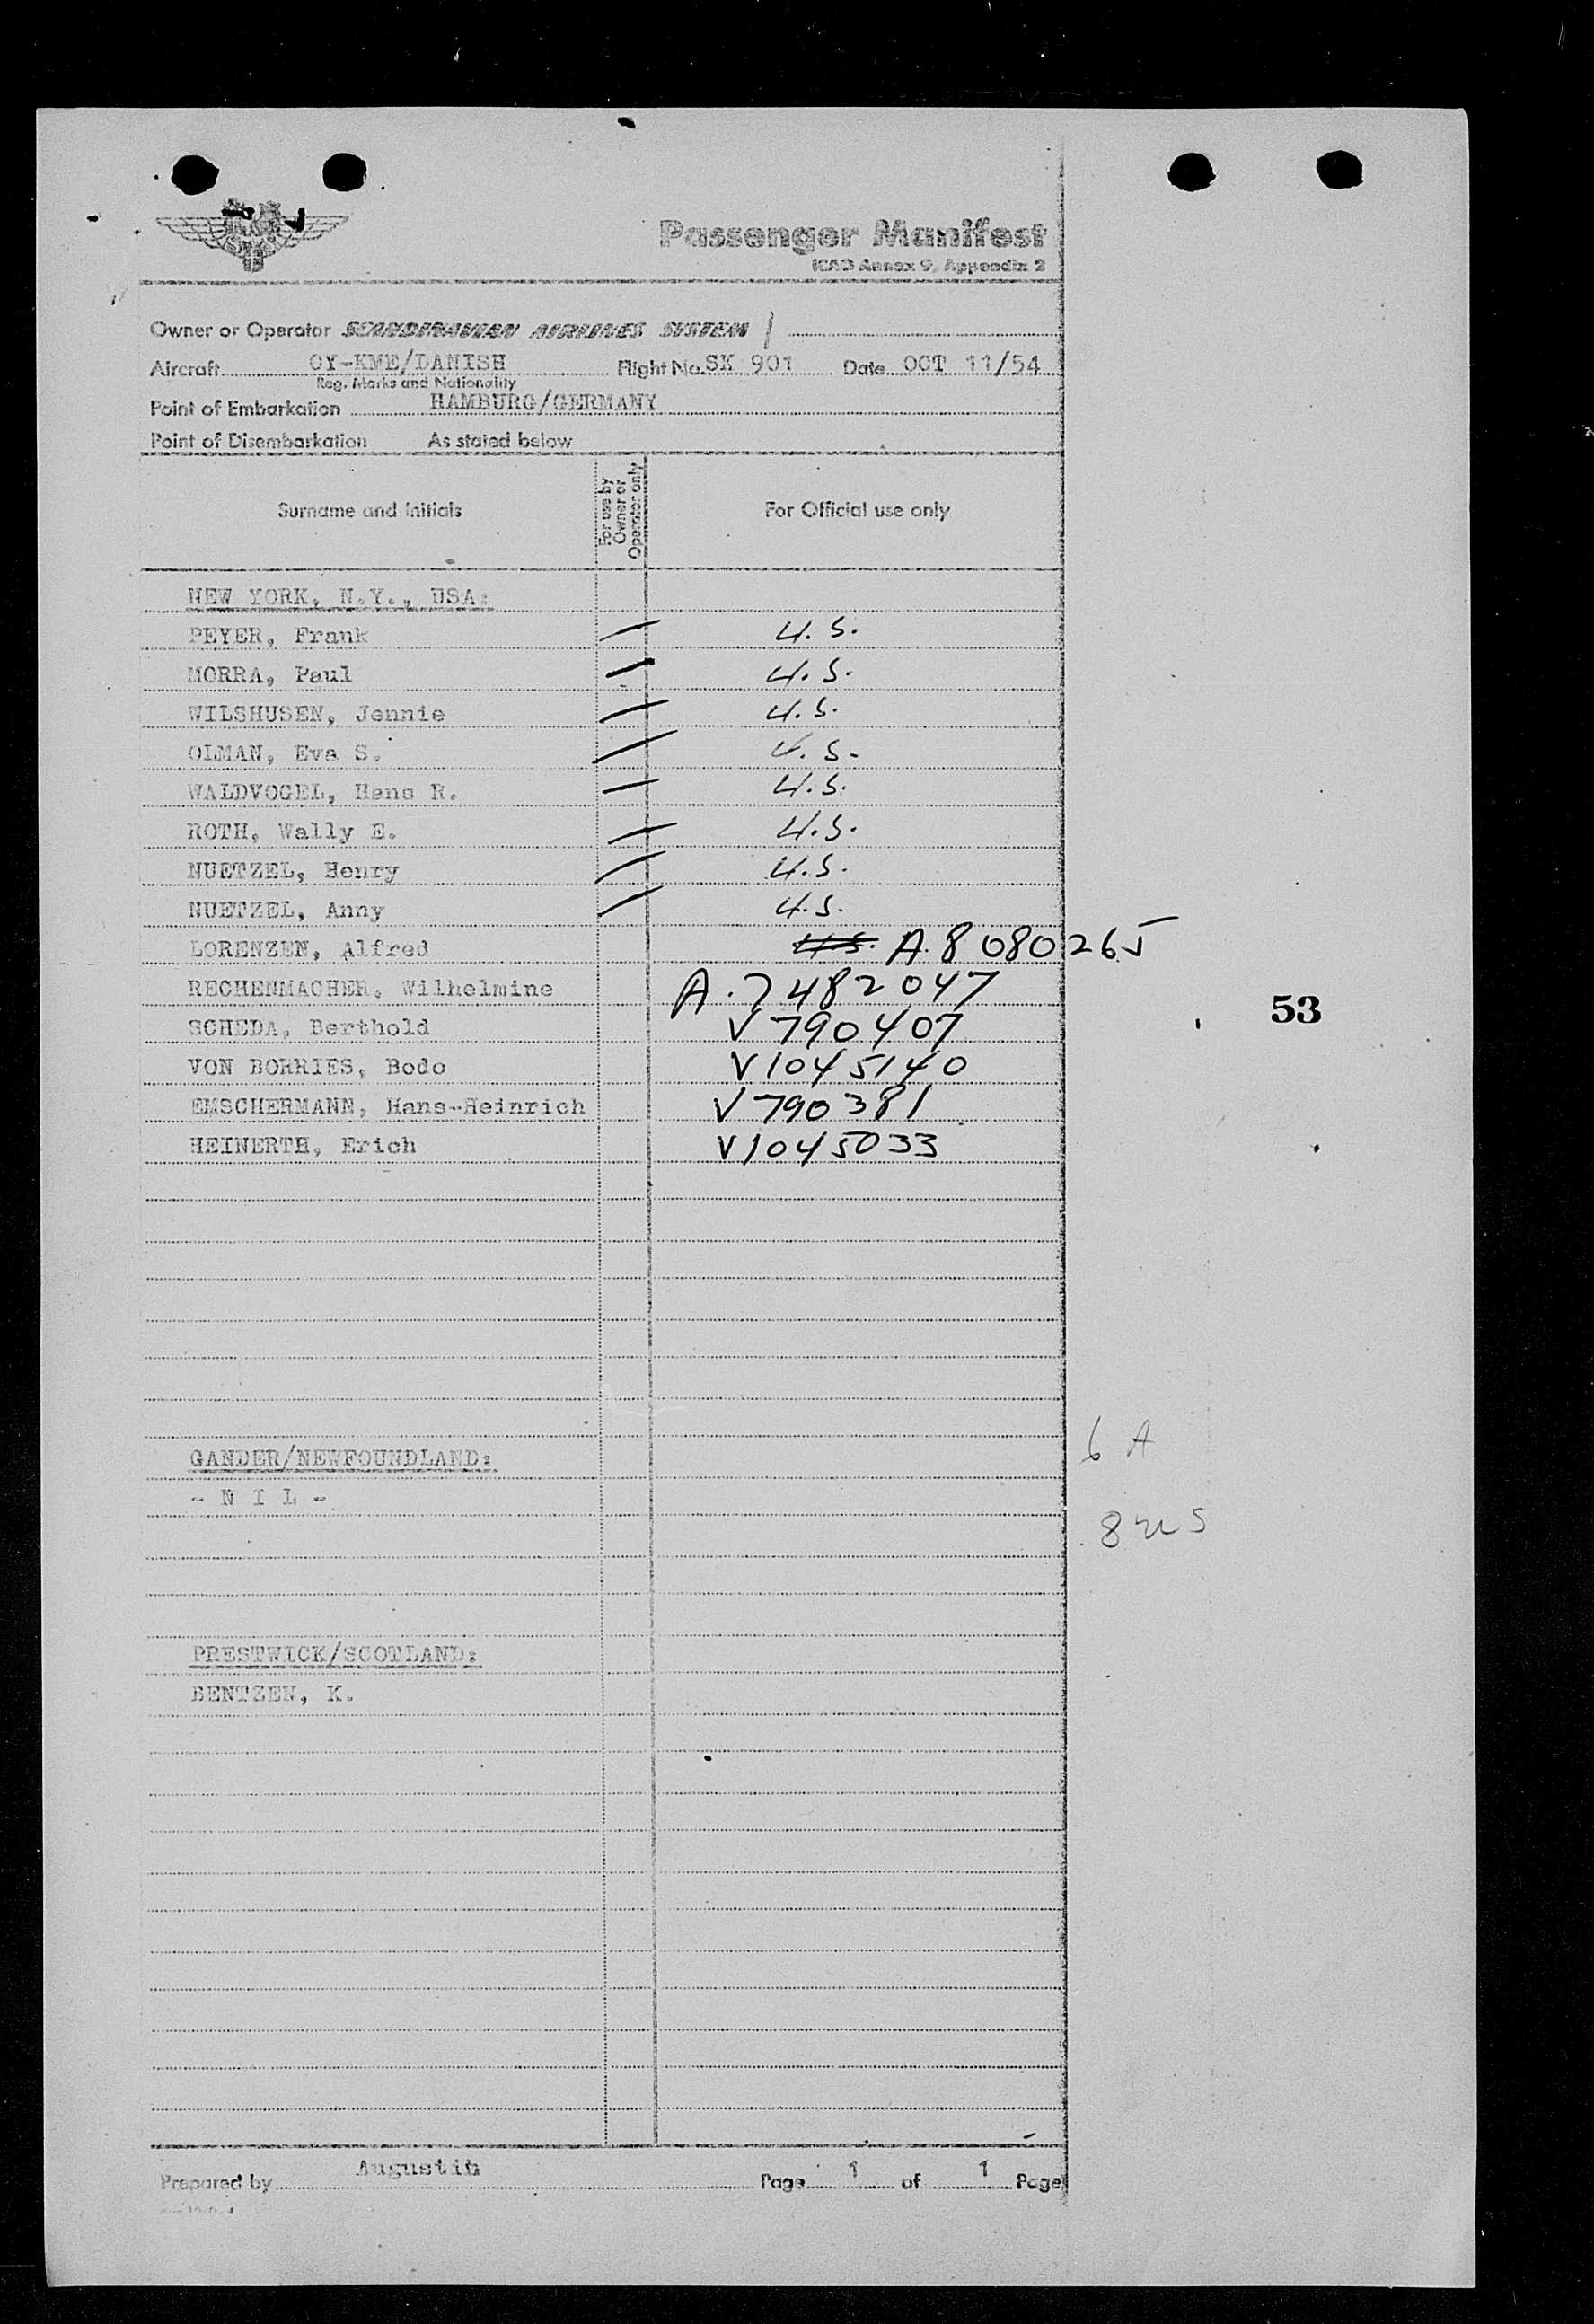 Passenger Manifest
ICAO Annex 9, Appendix 2
Owner or Operator SCANDINAVIAN AIRLINES SYSTEM
Aircraft OY-KME/DANISH Flight No. SK 901 Date OCT 11/54
Reg. Marks and Nationality
Point of Embarkation HAMBURG/GERMANY
Point of Disembarkation As stated below
Surname and Initials For use by Owner or Operator only For Official use only
NEW YORK, N.Y., USA:
PEYER, Frank U.S.
MORRA, Paul U.S.
WILSHUSEN, Jennie U.S.
OLMAN, Eva S. U.S.
WALDVOGEL, Hans R. U.S.
ROTH, Wally E. U.S.
NUETZEL, Henry U.S.
NUETZEL, Anny U.S.
LORENZEN, Alfred U.S. A.8080265
RECHENMACHER, Wilhelmine A.7482047
53
SCHEDA, Berthold V790407
VON BORRIES, Bodo V1045140
EMSCHERMANN, Hans-Heinrich V790381
HEINERTH, Erich V1045033
6 A
GANDER/NEWFOUNDLAND:
- N I L -
8 US
PRESTWICK/SCOTLAND:
BENTZEN, K.
Prepared by Augustin Page 1 of 1 Page